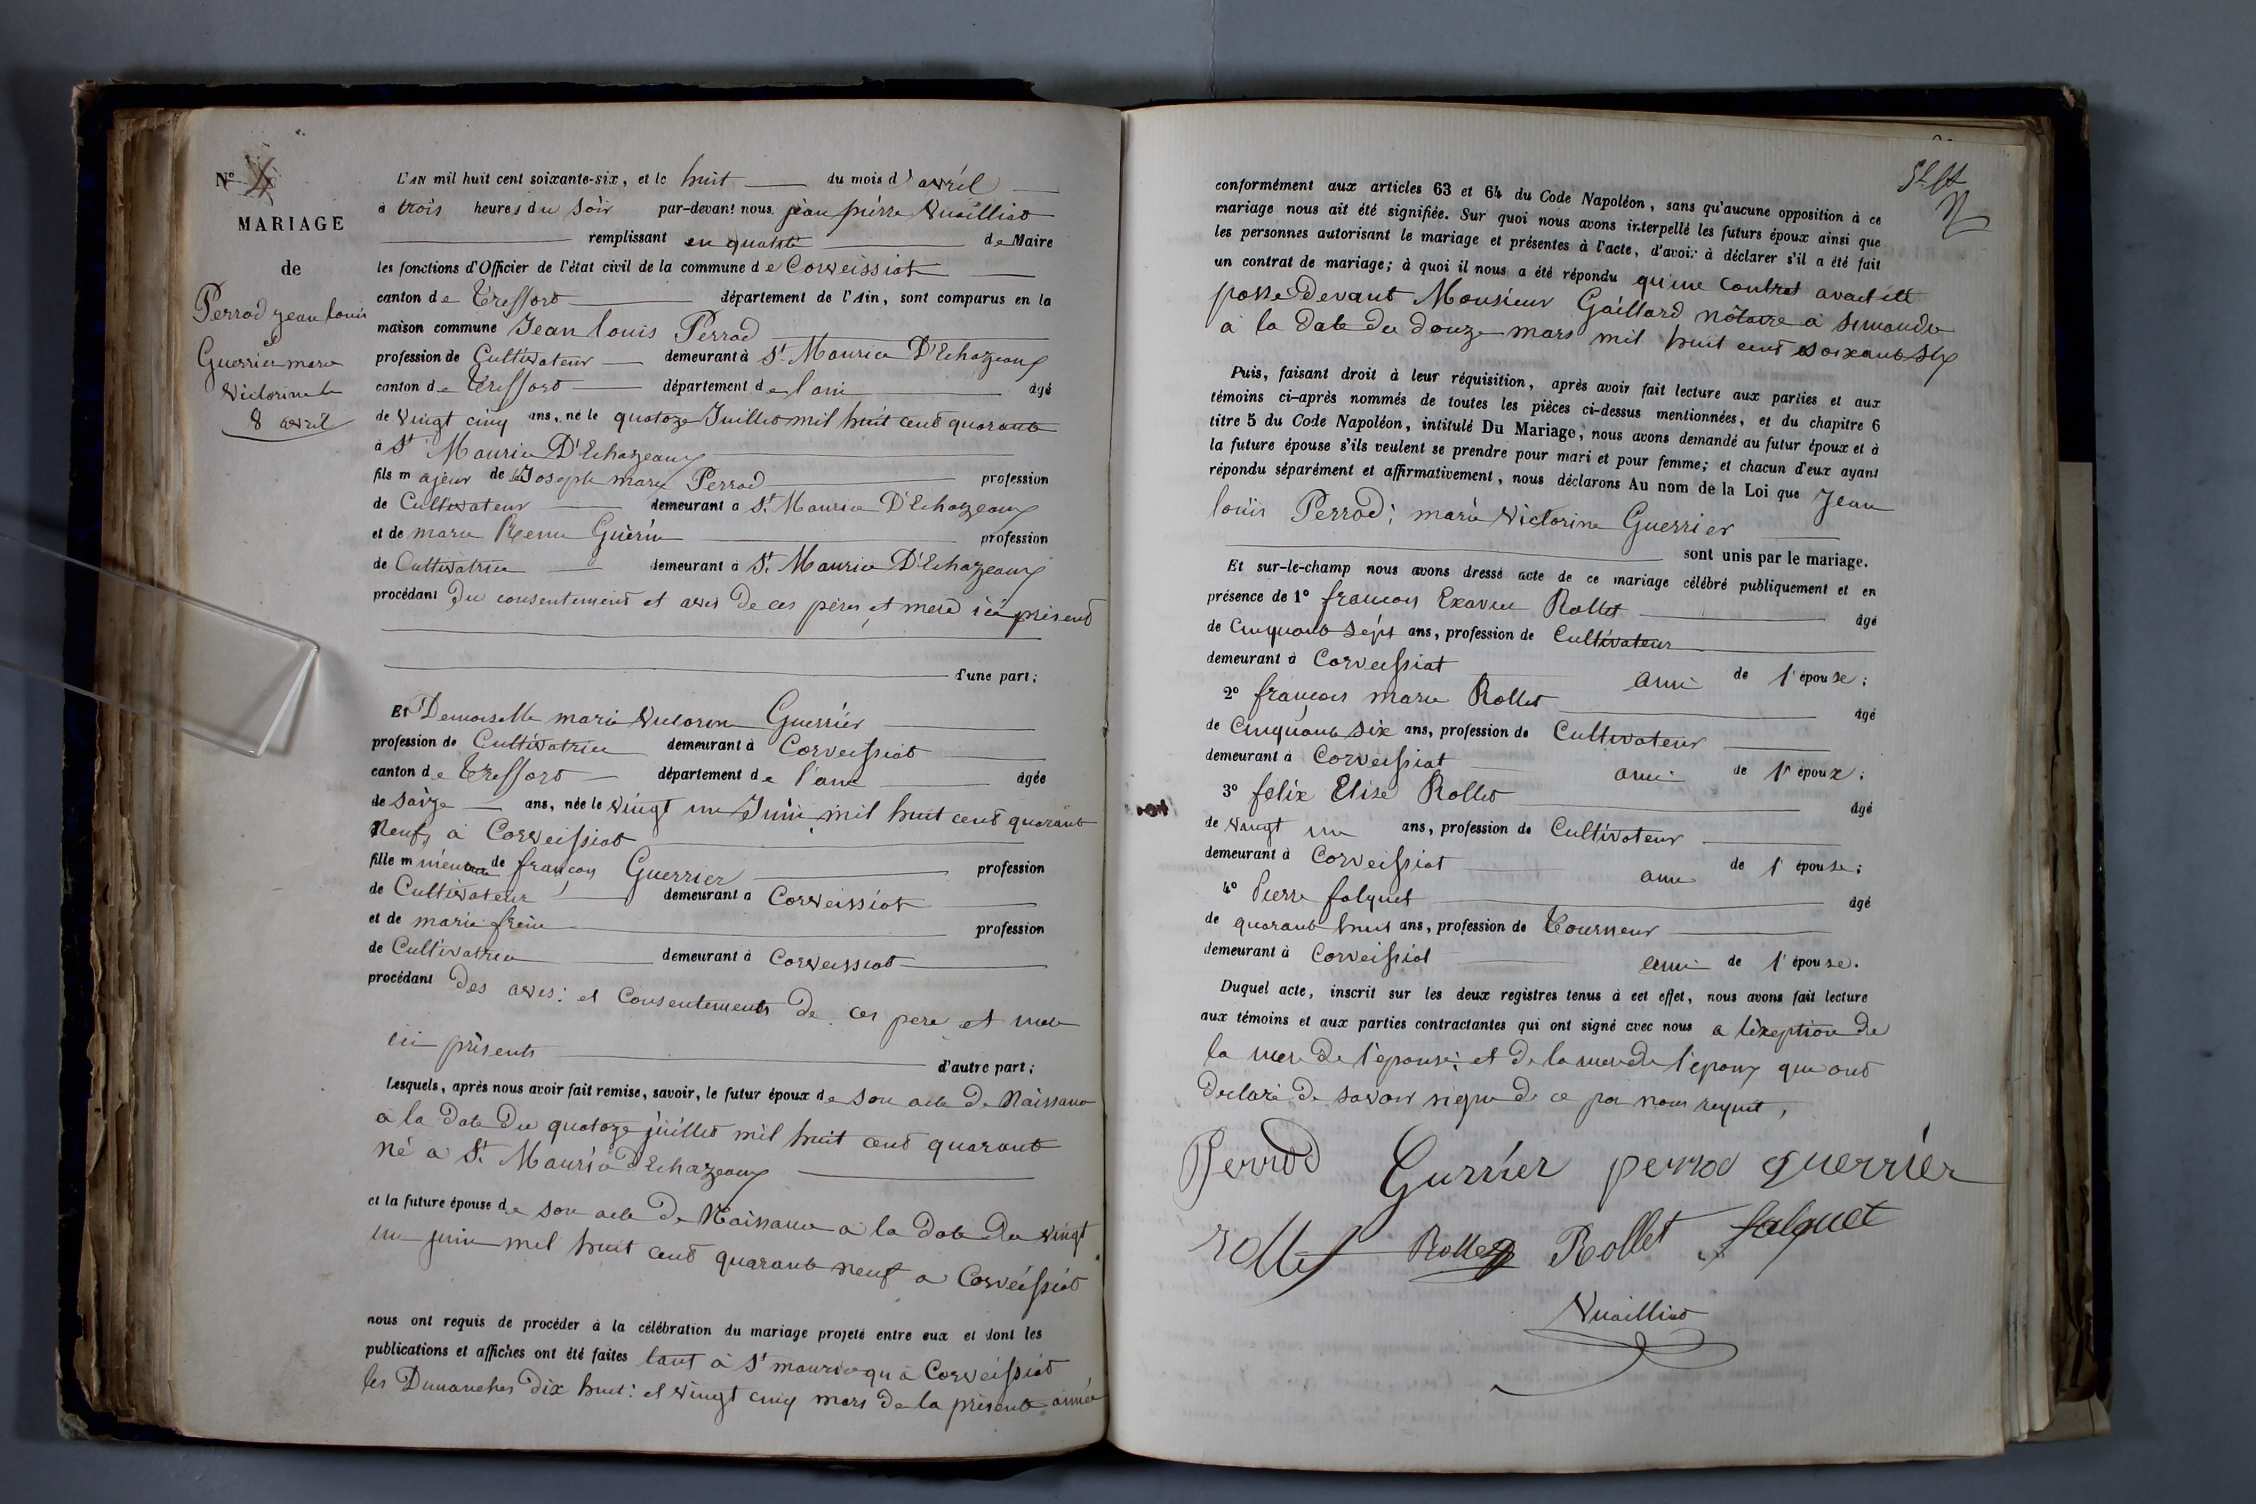 N° 4
MARIAGE
de
Perrod jean louis
et
Guerrier marie
Victorine le
8 avril
L'AN mil huit cent soixante-six, et le huit du mois d'avril
à trois heures du soir par-devant nous jean pierre Vuailliat
remplissant en qualité de Maire
les fonctions d'Officier de l'état civil de la commune de Corveissiat
canton de Treffort département de l'Ain, sont comparus en la
maison commune Jean louis Perrod
profession de Cultivateur demeurant à St Maurice D'Echazeaux
canton de Treffort département de l'ain âgé
de Vingt cinq ans, né le quatoze Juillet mil huit cent quarante
à St Maurice D'Echazeaux
fils majeur de Joseph marie Perrod profession
de Cultivateur demeurant à St Maurice D'Echazeaux
et de marie Rene Guérin profession
de Cultivatrice demeurant à St Maurice D'Echazeaux
procédant du consentement et avis de ces père et mere ici présent
d'une part;
Et Demoiselle marie Victorine Guerrier
profession de Cultivatrice demeurant à Corveissiat
canton de Treffort département de l'ain âgée
de saize ans, née le vingt un Juin mil huit cent quarante
neuf à Corveissiat
fille mineure de françois Guerrier profession
de Cultivateur demeurant à Corveissiat
et de marie frène profession
de Cultivatrice demeurant à Corveissiat
procédant des avis: et Consentements de ces pere et mere
ici présents d'autre part;
Lesquels, après nous avoir fait remise, savoir, le futur époux de son acte de Naissance
a la date du quatoze juillet mil huit cent quarante
né a St Maurice d'Echazeaux
et la future épouse de son acte de Naissance a la date du vingt
un juin mil huit cent quarante neuf a Corveissiat
nous ont requis de procéder à la célébration du mariage projeté entre eux et dont les
publications et affiches ont été faites tant à St maurice qu'à Corveissiat
les Dimanches dix huit: et vingt cinq mars de la présente année
conformément aux articles 63 et 64 du Code Napoléon, sans qu'aucune opposition à ce
mariage nous ait été signifiée. Sur quoi nous avons interpellé les futurs époux ainsi que
les personnes autorisant le mariage et présentes à l'acte, d'avoir à déclarer s'il a été fait
un contrat de mariage; à quoi il nous a été répondu qu'une Contrat avait été
passé devant Monsieur Gaillard nôtaire a simandre
a la date du douze mars mil huit cent soixante six
Puis, faisant droit à leur réquisition, après avoir fait lecture aux parties et aux
témoins ci-après nommés de toutes les pièces ci-dessus mentionnées, et du chapitre 6
titre 5 du Code Napoléon, intitulé Du Mariage, nous avons demandé au futur époux et à
la future épouse s'ils veulent se prendre pour mari et pour femme; et chacun d'eux ayant
répondu séparément et affirmativement, nous déclarons Au nom de la Loi que Jean
louis Perrod; marie Victorine Guerrier
sont unis par le mariage.
Et sur-le-champ nous avons dressé acte de ce mariage célébré publiquement et en
présence de 1° françois Exavier Rollet âgé
de Cinquante sept ans, profession de Cultivateur
demeurant à Corveissiat ami de l'épouse;
2° françois marie Rollet âgé
de Cinquante six ans, profession de Cultivateur
demeurant à Corveissiat ami de l'époux;
3° felix Elise Rollet âgé
de vingt un ans, profession de Cultivateur
demeurant à Corveissiat ami de l'épouse;
4° Pierre falquet âgé
de quarante huit ans, profession de Tourneur
demeurant à Corveissiat ami de l'épouse.
Duquel acte, inscrit sur les deux registres tenus à cet effet, nous avons fait lecture
aux témoins et aux parties contractantes qui ont signé avec nous a l'exeption de
la mere de l'épouse; et de la mere de l'époux que ont
declaré de savoir signe de ce par nous requit,
Perrod Gurrier perrod guerrier
rollet Rollet Rollet falquet
Vuailliat